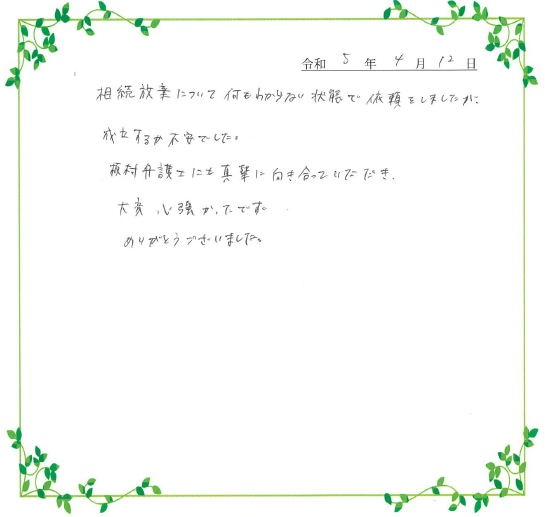 令和 5 年 4 月 12 日
相続放棄について何もわからない状態で依頼をしましたが、
成立するか不安でした。
板村弁護士にも真摯に向き合っていただき、
大変心強かったです。
ありがとうございました。